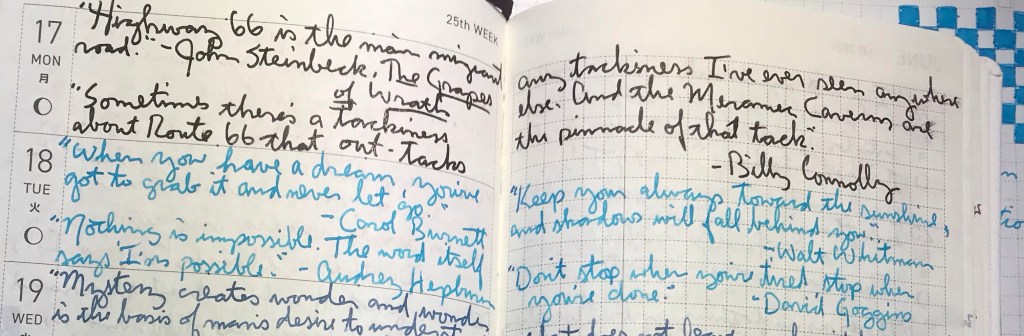 25th WEEK
17
MON
月
"Highway 66 is the main migrant
road." - John Steinbeck, The Grapes
of Wrath
"Sometimes there's a tackiness
about Route 66 that out-tacks
18
TUE
火
"When you have a dream, you've
got to grab it and never let go."
- Carol Burnett
"Nothing is impossible. The word itself
says I'm possible." - Audrey Hepburn
19
WED
"Mystery creates wonder and wonder
is the basis of man's desire to underst
any tackiness I've ever seen anywhere
else. And the Meramec Caverns are
the pinnacle of that tack."
- Billy Connolly
"Keep your always toward the sunshine,
and shadows will fall behind you."
- Walt Whitman
"Don't stop when you're tired stop when
you're done." - David Goggins